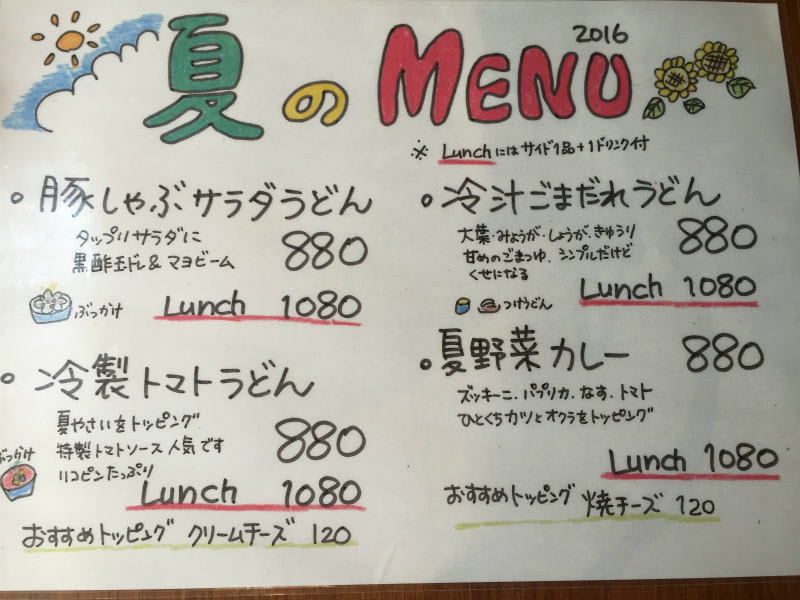 夏のMENU
2016
※ Lunchにはサイド1品+1ドリンク付
・豚しゃぶサラダうどん
タップリサラダに
黒酢玉ドレ&マヨビーム
880
ぶっかけ
Lunch 1080
・冷製トマトうどん
夏やさいをトッピング
特製トマトソース人気です
リコピンたっぷり
880
ぶっかけ
Lunch 1080
おすすめトッピング クリームチーズ 120
・冷汁ごまだれうどん
大葉・みょうが・しょうが・きゅうり
甘めのごまつゆ、シンプルだけど
くせになる
880
つけうどん
Lunch 1080
・夏野菜カレー 880
ズッキーニ、パプリカ、なす、トマト
ひとくちカツとオクラをトッピング
Lunch 1080
おすすめトッピング 焼チーズ 120